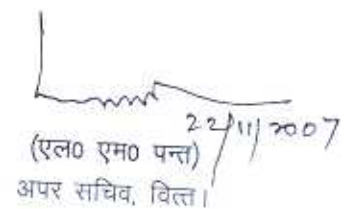 22/11/2007
(एल0 एम0 पन्त)
अपर सचिव, वित्त।